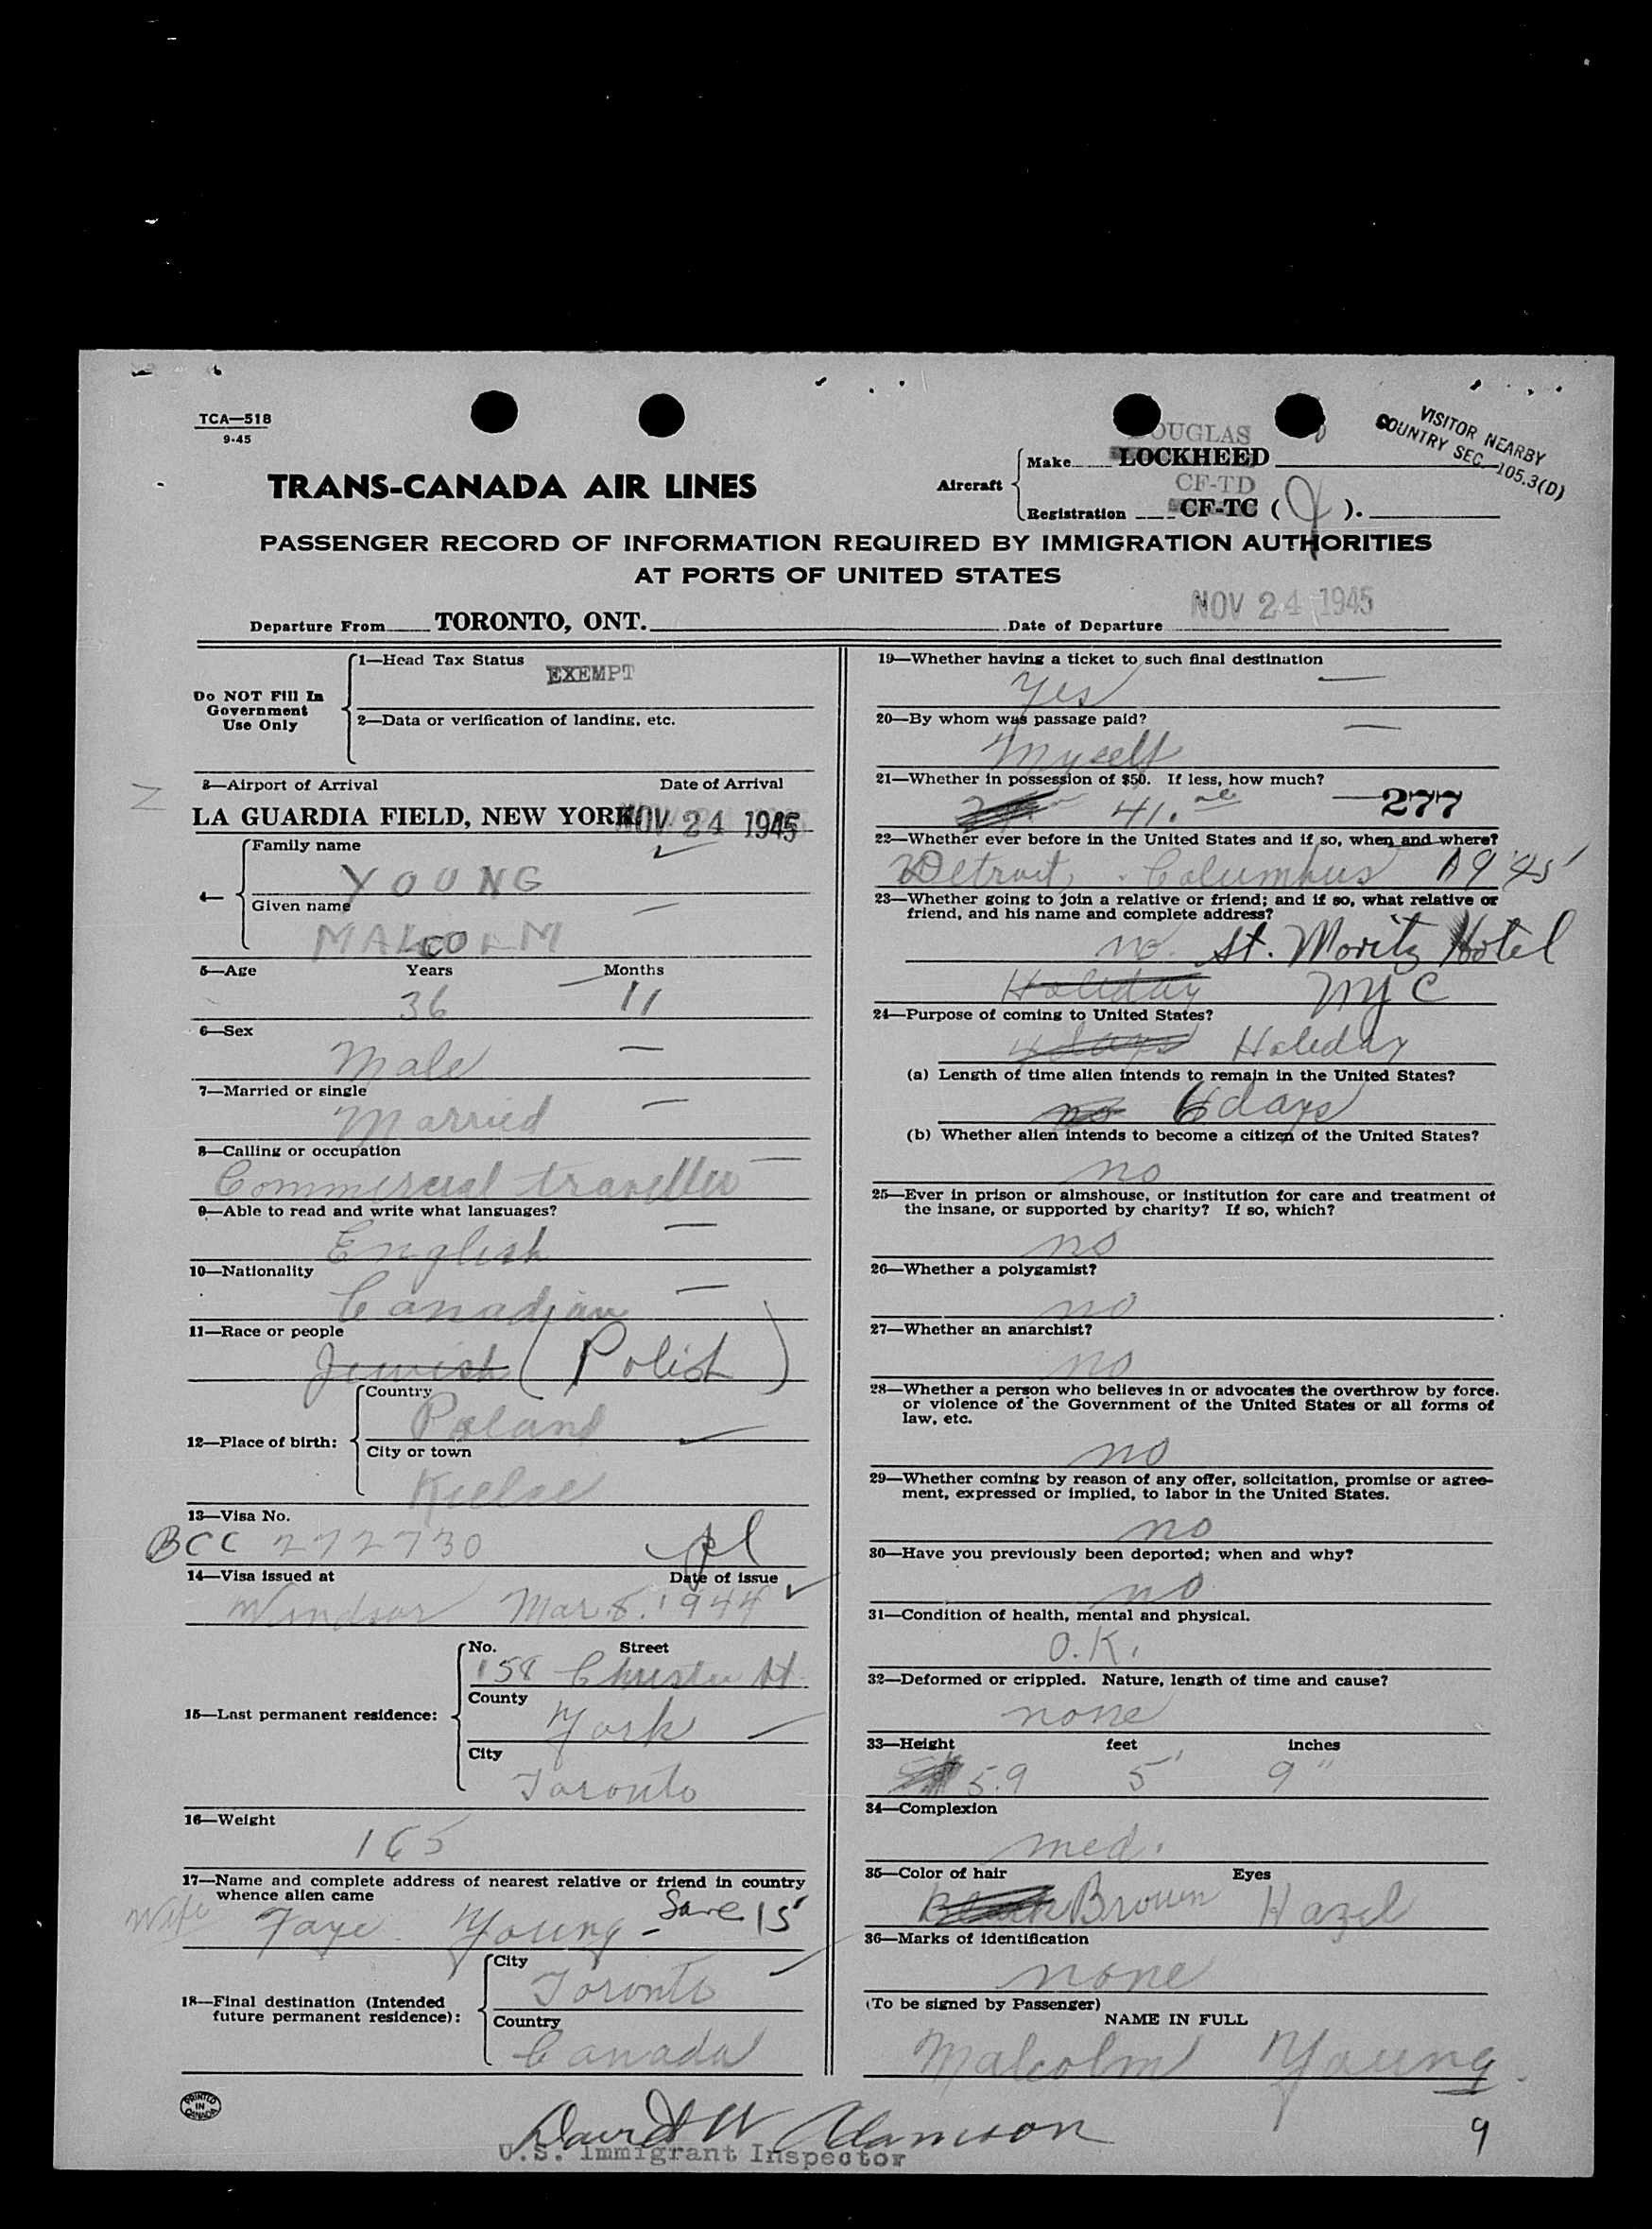 TCA—518
9-45
VISITOR NEARBY
COUNTRY SEC. 105.3(D)
TRANS-CANADA AIR LINES
Aircraft
DOUGLAS
Make LOCKHEED
CF-TD
Registration CF-TC ( ).
PASSENGER RECORD OF INFORMATION REQUIRED BY IMMIGRATION AUTHORITIES
AT PORTS OF UNITED STATES
Departure From TORONTO, ONT. Date of Departure NOV 24 1945
Do NOT Fill In
Government
Use Only
1—Head Tax Status
EXEMPT
2—Data or verification of landing, etc.
3—Airport of Arrival Date of Arrival
LA GUARDIA FIELD, NEW YORK NOV 24 1945
4—
Family name
YOUNG
Given name
MALCOLM
5—Age Years Months
36 11
6—Sex
Male
7—Married or single
Married
8—Calling or occupation
Commercial traveller
9—Able to read and write what languages?
English
10—Nationality
Canadian
11—Race or people
Jewish (Polish)
12—Place of birth:
Country
Poland
City or town
Kielse
13—Visa No.
BCC 272730
14—Visa issued at Date of issue
Windsor Mar. 8. 1944
15—Last permanent residence:
No. Street
158 Christie St.
County
York
City
Toronto
16—Weight
165
17—Name and complete address of nearest relative or friend in country
whence alien came
Wife Faye Young - Same 15
18—Final destination (Intended
future permanent residence):
City
Toronto
Country
Canada
19—Whether having a ticket to such final destination
Yes
20—By whom was passage paid?
Myself
21—Whether in possession of $50. If less, how much?
41. 277
22—Whether ever before in the United States and if so, when and where?
Detroit, Columbus '45
23—Whether going to join a relative or friend; and if so, what relative or
friend, and his name and complete address?
no. St. Moritz Hotel
Holiday NYC
24—Purpose of coming to United States?
4 days Holiday
(a) Length of time alien intends to remain in the United States?
no 6 days
(b) Whether alien intends to become a citizen of the United States?
no
25—Ever in prison or almshouse, or institution for care and treatment of
the insane, or supported by charity? If so, which?
no
26—Whether a polygamist?
no
27—Whether an anarchist?
no
28—Whether a person who believes in or advocates the overthrow by force.
or violence of the Government of the United States or all forms of
law, etc.
no
29—Whether coming by reason of any offer, solicitation, promise or agree-
ment, expressed or implied, to labor in the United States.
no
30—Have you previously been deported; when and why?
no
31—Condition of health, mental and physical.
O.K.
32—Deformed or crippled. Nature, length of time and cause?
none
33—Height feet inches
5.9 5' 9"
34—Complexion
med.
35—Color of hair Eyes
Black Brown Hazel
36—Marks of identification
none
(To be signed by Passenger)
NAME IN FULL
Malcolm Young.
PRINTED
IN
CANADA
David W Adamson
U.S. Immigrant Inspector
9